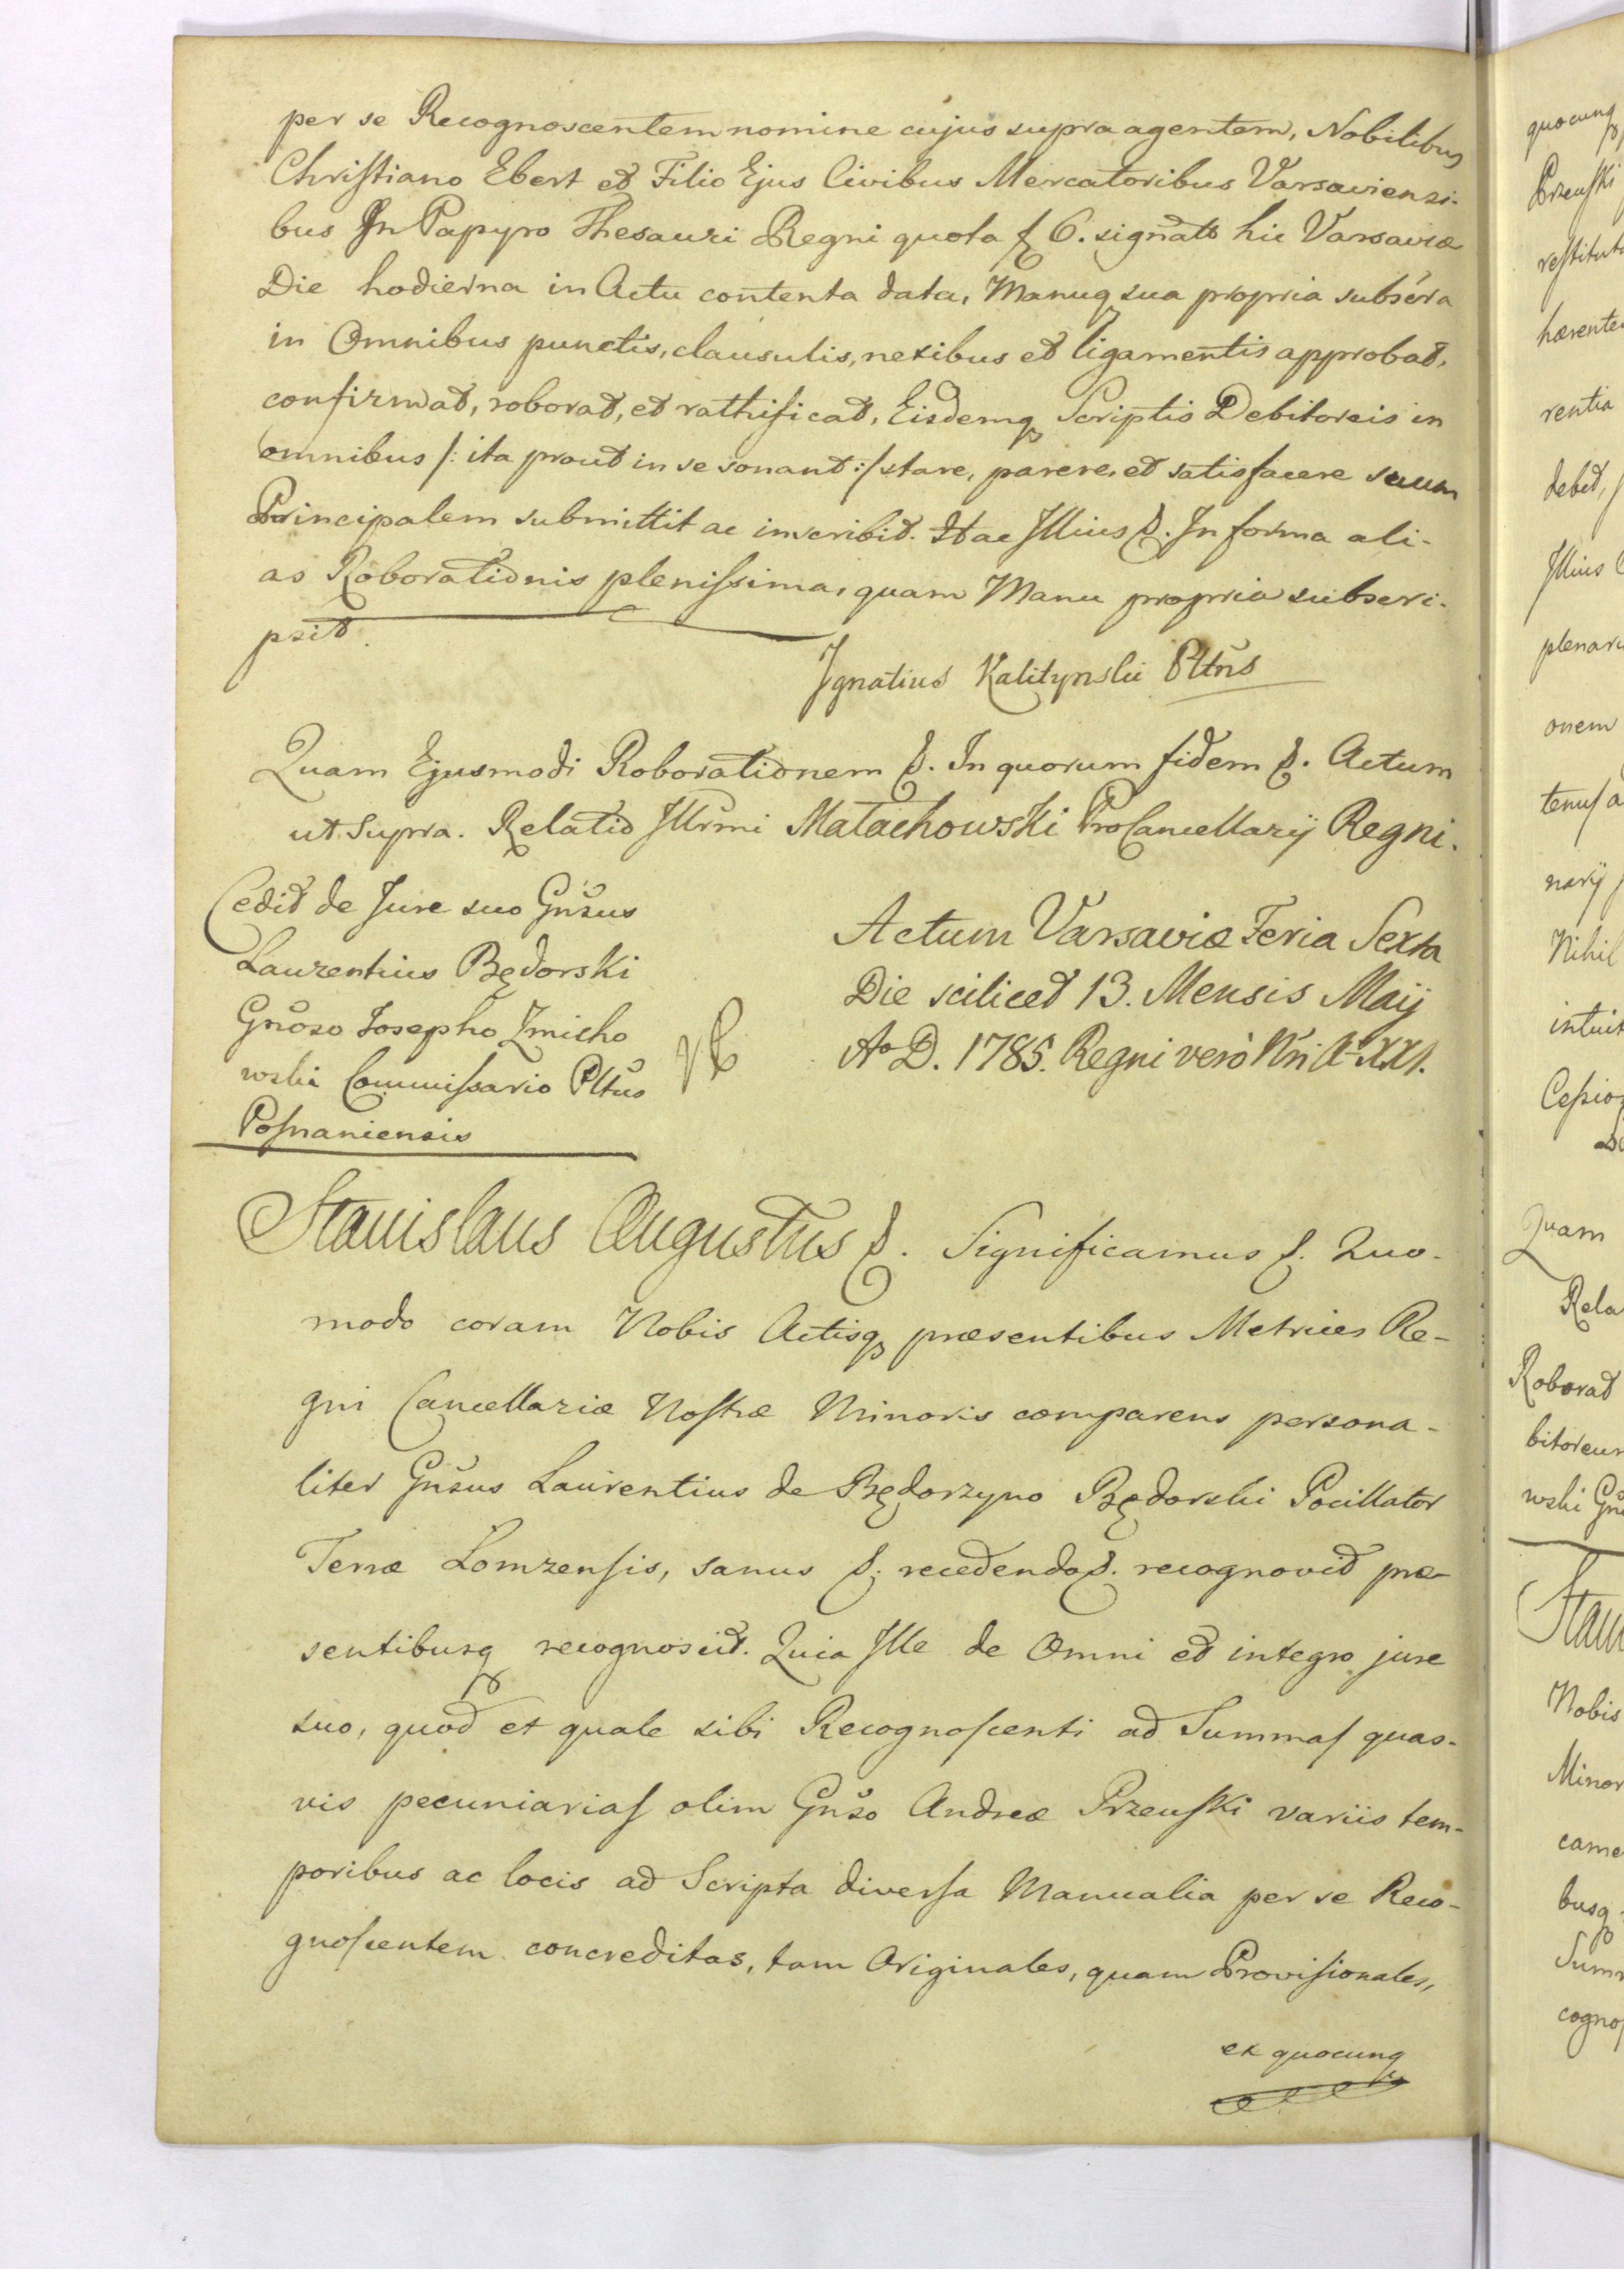 per se Recognoscentem nomine cujus supra agentem, Nobilibus
Christiano Ebert et Filio Ejus Civibus Mercatoribus Varsaviensi-
bus In Papyro Thesauri Regni quota f 6. signato hic Varsaviæ
Die hodierna in Actu contenta data, Manuq sua propria subscra
in Omnibus punctis, clausulis, nexibus et ligamentis approbat,
confirmat, roborat, et rathificat, Eisdemq Scriptis Debitoreis in
omnibus /: ita prout in se sonant :/ stare, parere, et satisfacere suum
Principalem submittit ac inscribit. Hac Illius &. In forma ali-
as Roborationis plenissima, quam Manu propria subscri-
psit.
Ignatius Kalitynski Pltñs
Quam Ejusmodi Roborationem &. In quorum fidem &. Actum
ut Supra. Relatio Illrmi Małachowski ProCancellarij Regni.
Cedit de Jure suo Gñsus
Laurentius Będorski
Gnoso Josepho Zmicho
wski Commissario Pltus
Posnaniensis
Actum Varsaviæ Feria Sexta
Die scilicet 13. Mensis Maij
Ao D. 1785. Regni verò Nri Ao XXI.
Stanislaus Augustus &. Significamus &. Quo-
modo coram Nobis Actisq præsentibus Metrices Re-
gni Cancellariæ Nostræ Minoris comparens persona-
liter Gñsus Laurentius de Będorzyno Będorski Pocillator
Terræ Lomzensis, sanus &. recedendo &. recognovit præ-
sentibusq recognoscit. Quia Ille de Omni et integro jure
suo, quod et quale sibi Recognoscenti ad Summas quas-
vis pecuniarias olim Gñso Andreæ Przeuski variis tem-
poribus ac locis ad Scripta diversa Manualia per se Reco-
gnoscentem concreditas, tam Originales, quam Provisionales,
ex quocunq
quocunq
Przeuski
restituto
hærente
rentia
debet,
Illius
plenari
onem
tenus a
narij
Nihil
intuit
Cessio
Quam
Rela
Roborat
bitoreum
wski Gn
Stani
Nobis
Minor
came
busq
Sum
cognos